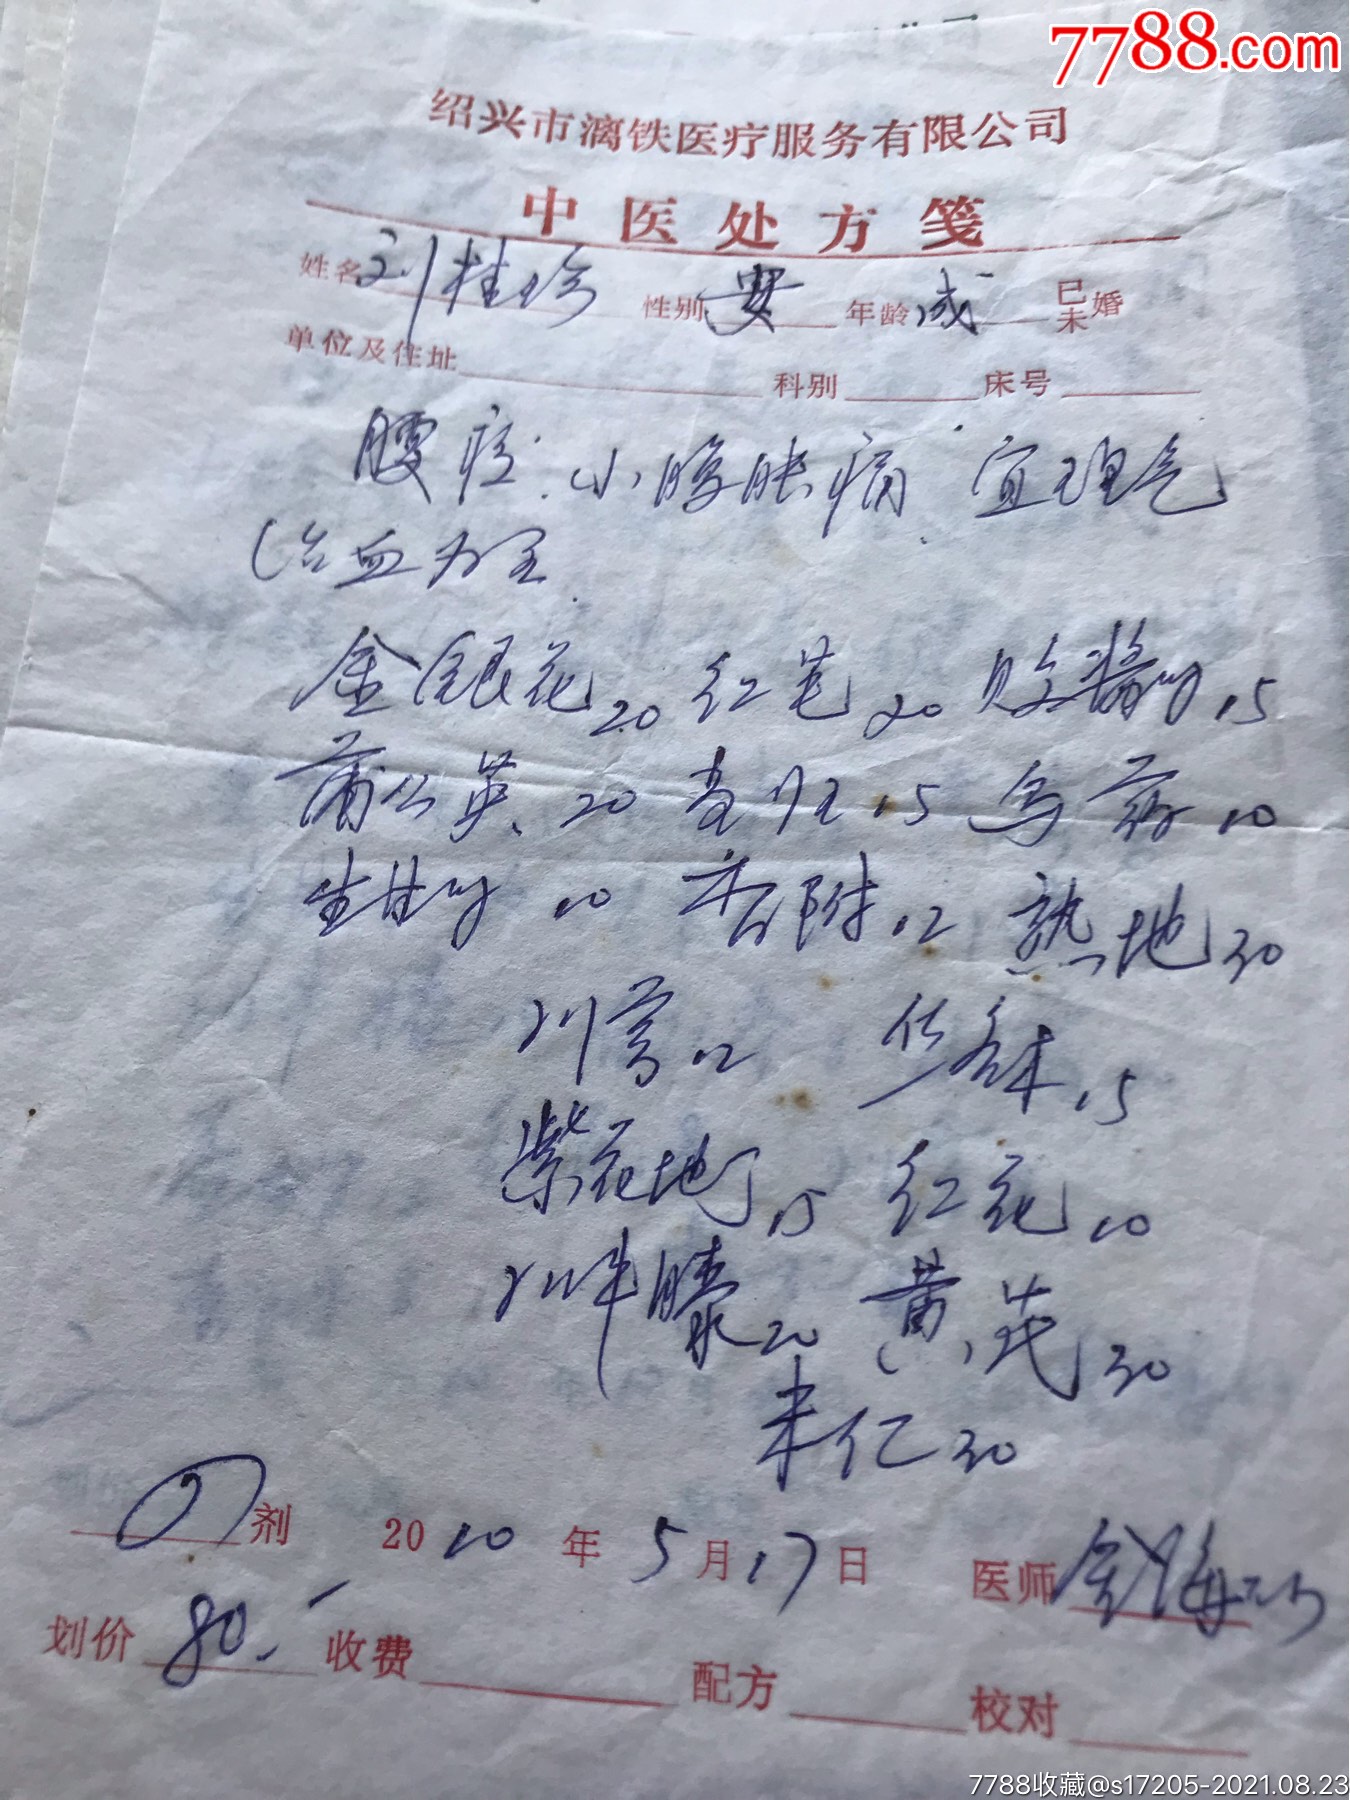 7788.com
绍兴市漓铁医疗服务有限公司
中医处方笺
姓名 刘桂珍 性别 年龄 成 已未婚
单位及住址 科别 床号
腰痠. 小腹胀痛 宜理气
活血为主.
金银花20 红芪20 败酱草15
蒲公英.20 当归15 乌药10
生甘草10 香附12 熟地30
川芎12 15
紫花地丁15 红花10
川牛膝20 黄芪30
米仁30
剂 2010年5月17日 医师 金海
划价 80.- 收费 配方 校对
7788收藏@s17205-2021.08.23